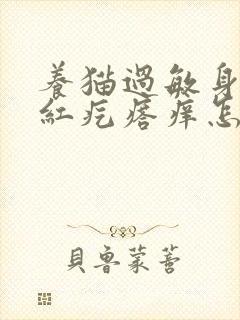 養猫過敏身
紅疙瘩痒怎
貝魯蒙蒈